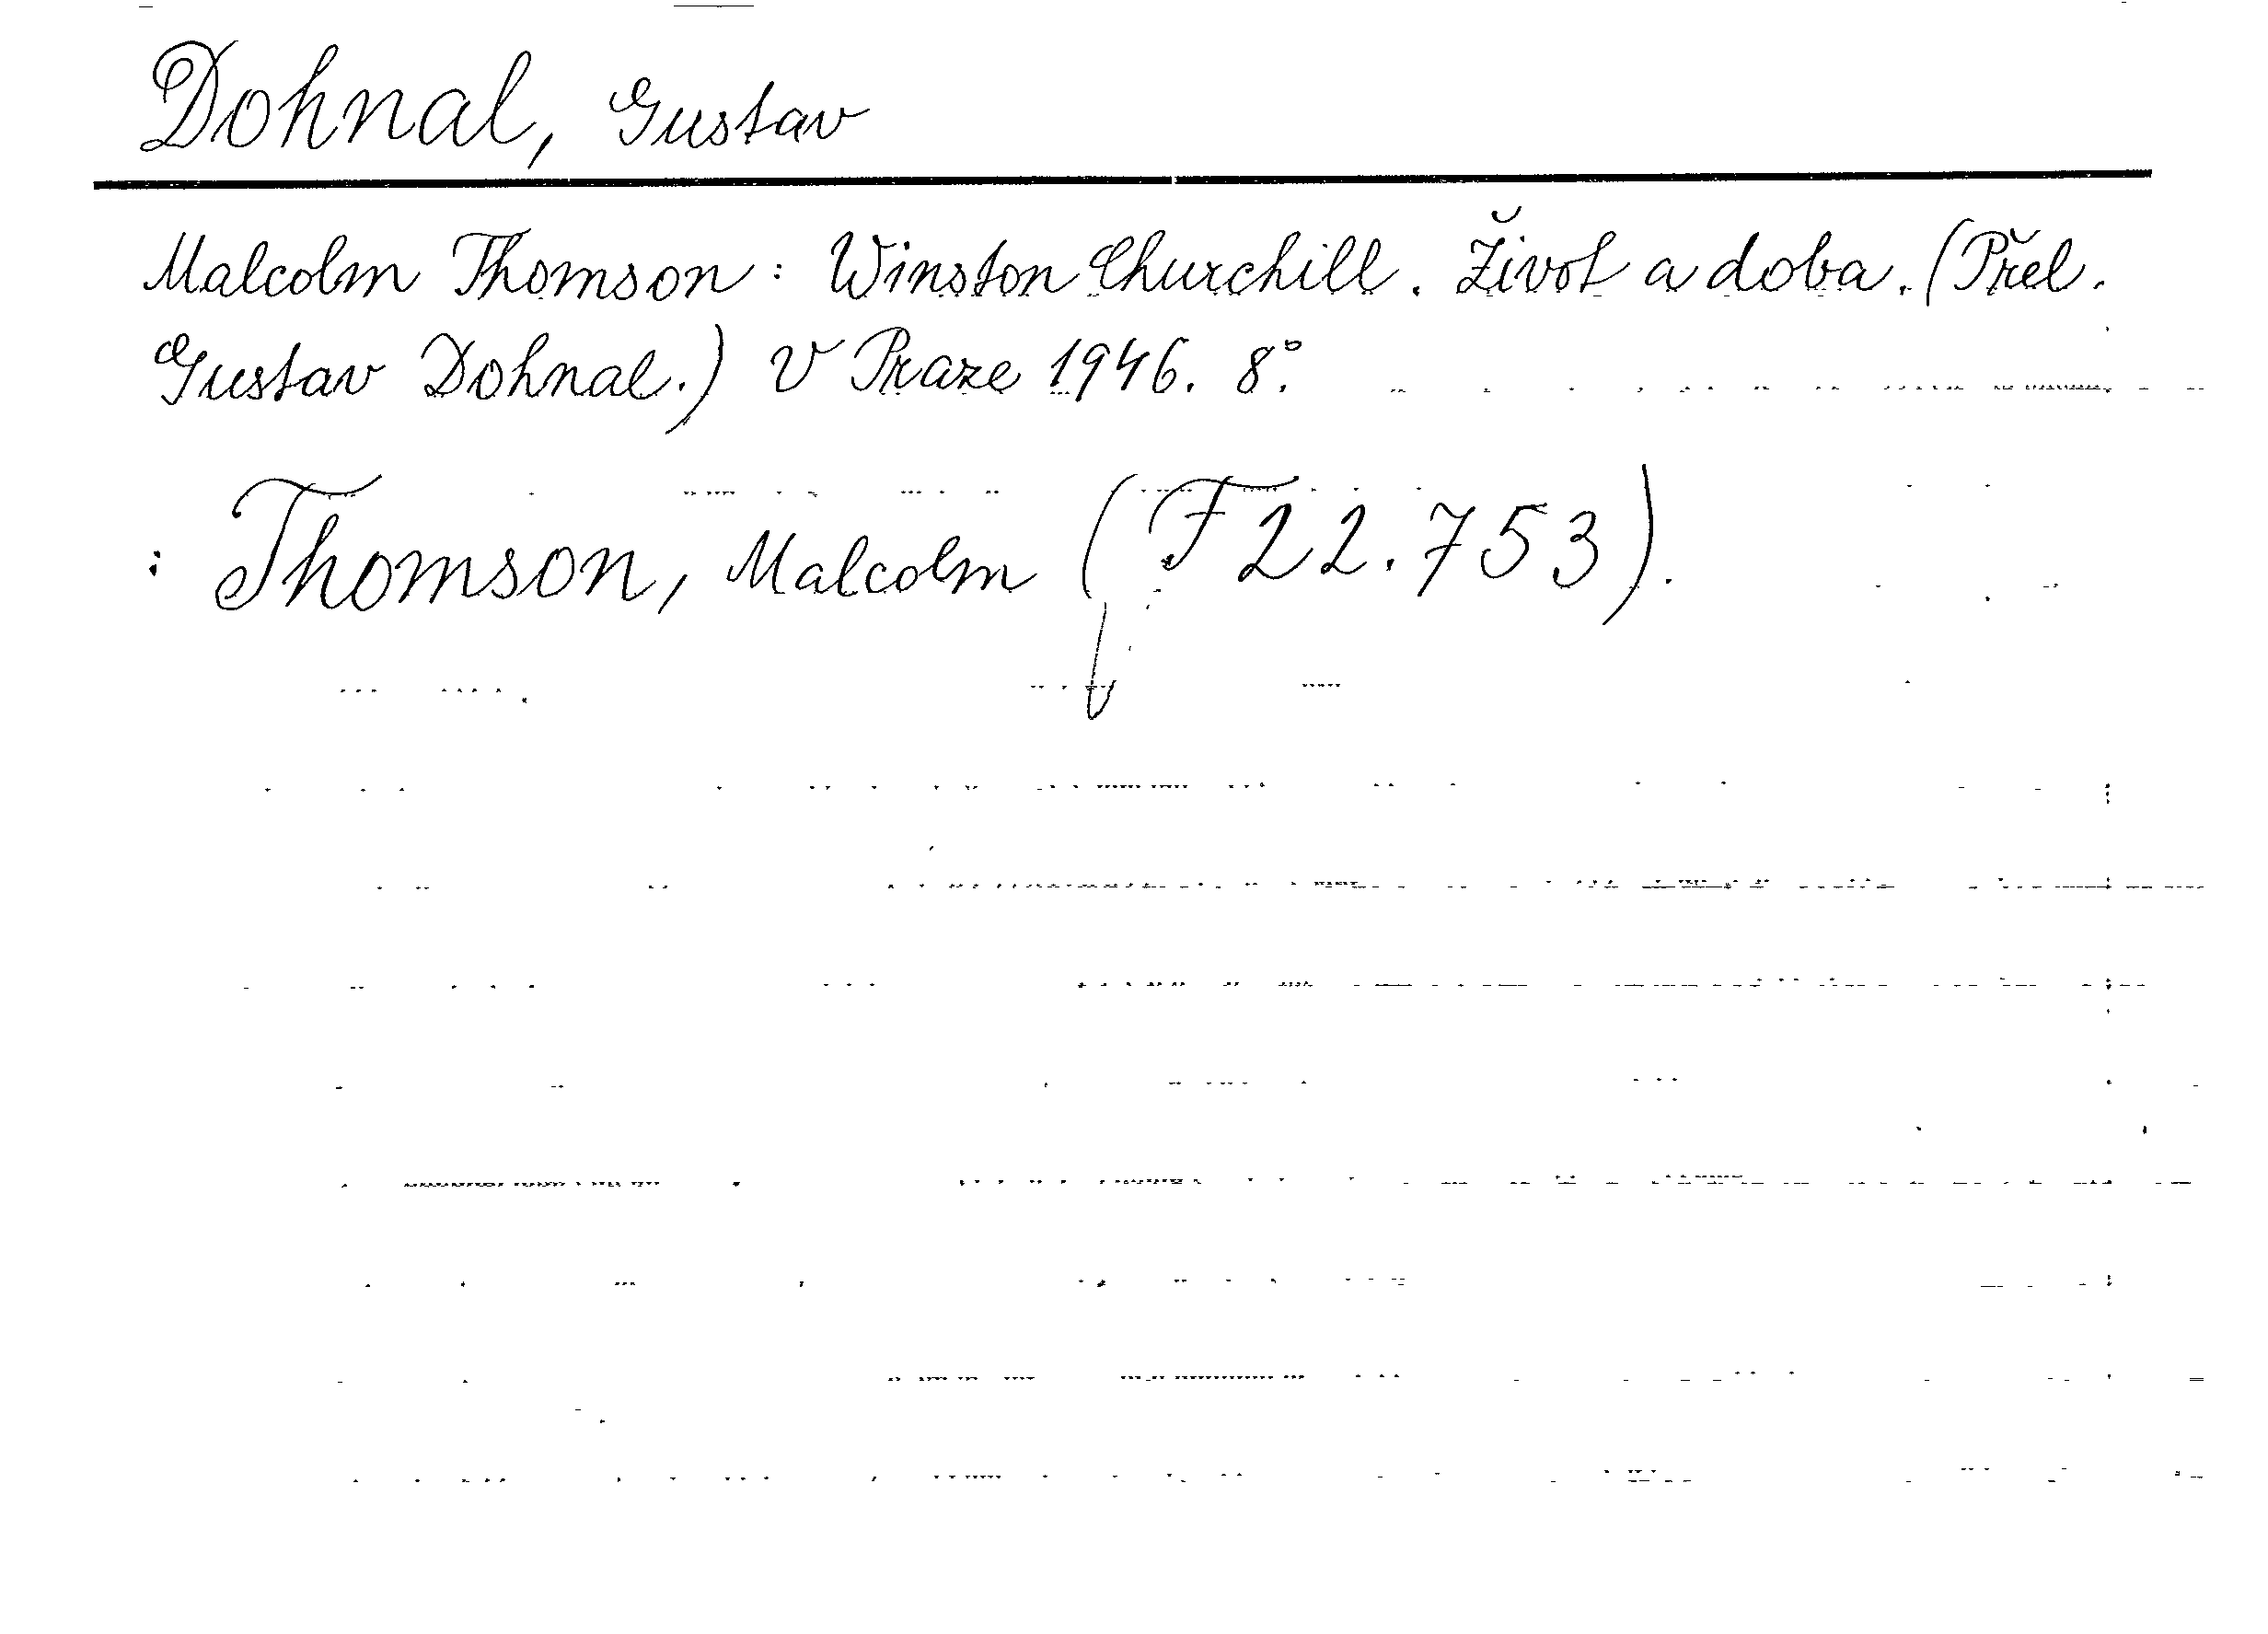 Dohnal, Gustav
Malcolm Thomson: Winston Churchill. Život a doba. (Přel.
Gustav Dohnal.) V Praze 1946. 8°.
: Thomson, Malcolm (F 22.753).